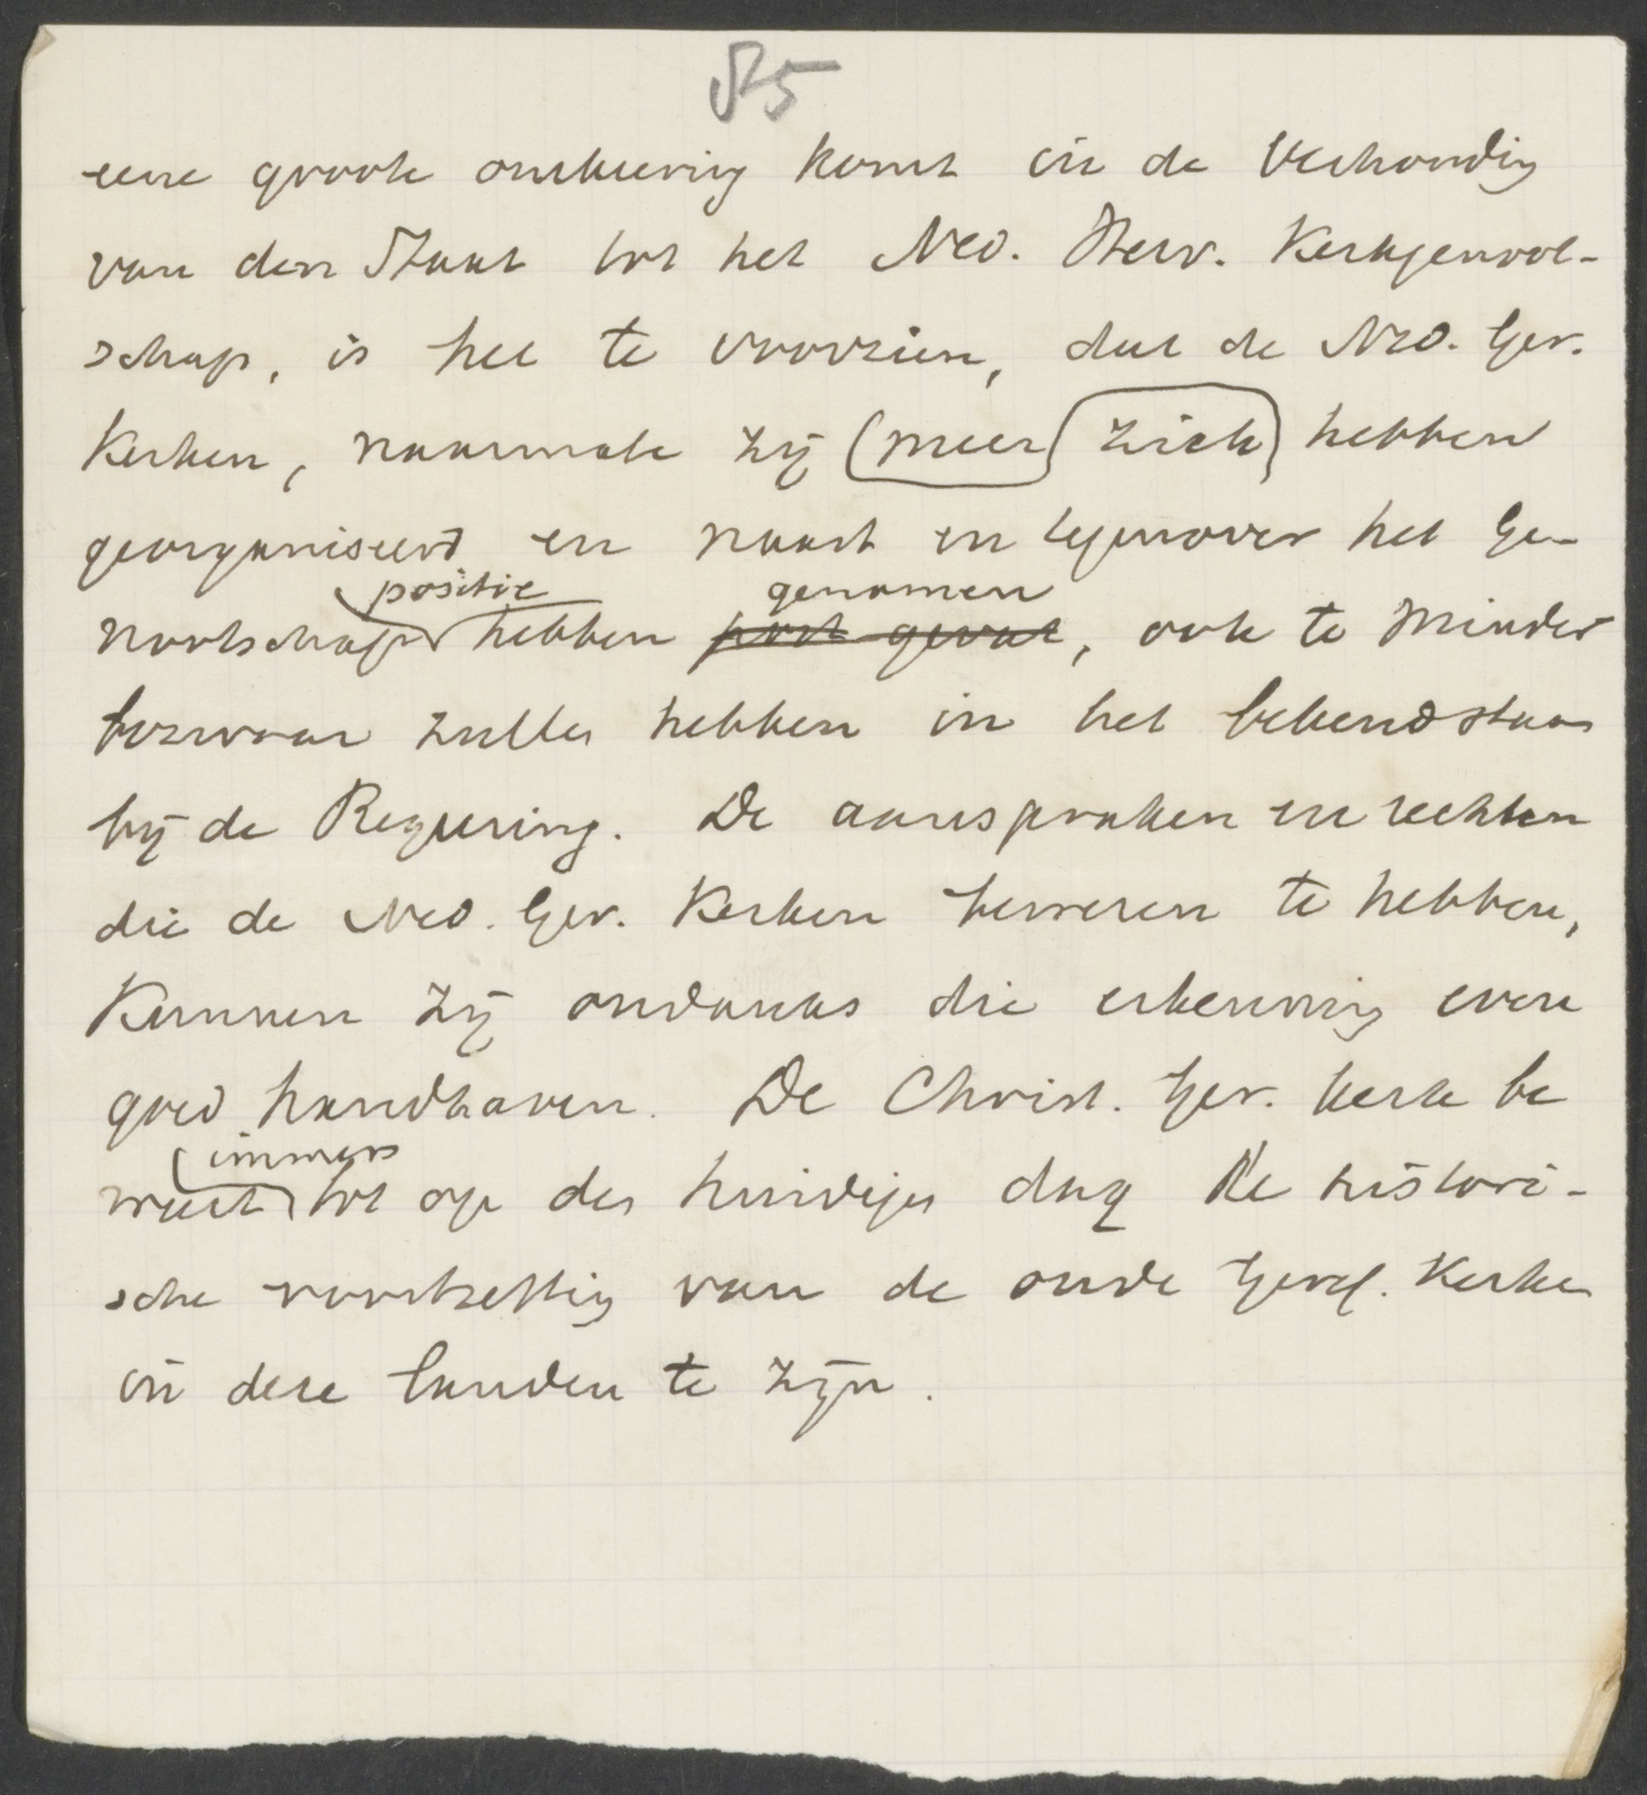 85
eene groote omkeering komt in de Verhouding
van den Staat tot het Ned. Herv. Kerkgenoot-
schap, is het te voorzien, dat de Ned. Ger.
Kerken, naarmate zij meer zich hebben
georganiseerd en naast en tegenover het Ge-
positie genomen
nootschap hebben post gevat, ook te minder
bezwaar zullen hebben in het bekend staan
bij de Regeering. De aanspraken en rechten
die de Ned. Ger. Kerken beweren te hebben,
Kunnen zij ondanks die erkenning even
goed handhaven. De Christ. Ger. Kerk be
immers
weert tot op den huidigen dag de histori-
sche voortzetting van de oude Geref. Kerken
in deze landen te zijn.